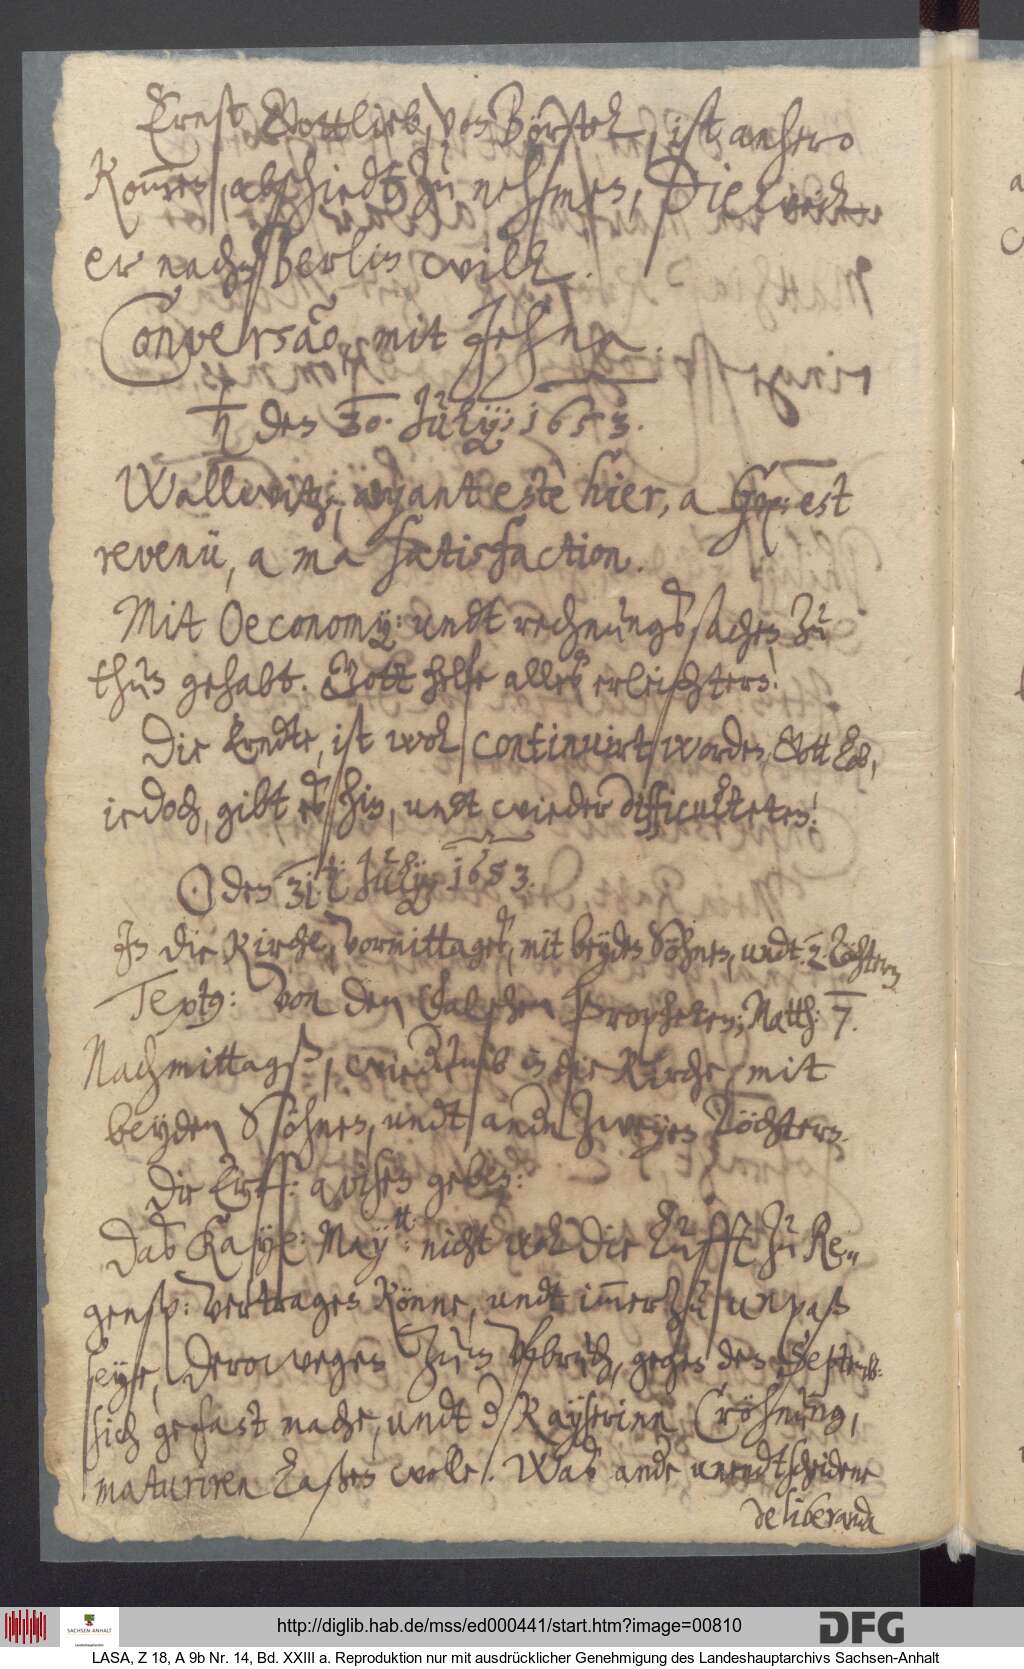 Ernst Gottlieb, von Börstel, ist anhero
kommen, abschiedt zu nehmen, Dieweil
er nacher Berlin will.
Conversão, mit Jehna.
♄ den 30. Julij: 1653.
Wallwitz, ayant estè hier, a Gxp: est
revenü, a ma satisfaction.
Mit Oeconomy: undt rechnungßsachen zu
thun gehabt. Gott helfe alleß erleichtern!
Die Erndte, ist wol continuirt worden, Gott lob,
iedoch, gibt eß hin, undt wieder difficulteten!
☉ den 31. Julij 1653.
In die Kirche, vormittageß, mit beyden Söhnen, undt 2 Töchtern
Textus: von den falschen Propheten; Matth: 7.
Nachmittagß, wiederumb in die Kirche, mit
beyden Söhnen, undt andern zweyen Töchtern.
Die Erff: avisen geben:
Daß Kayß: Maytt: nicht wol die lufft zu Re-
gensp: vertragen könne, undt immerzu unpaß
seye, derowegen zum Aufbruch, gegen den Septemb:
sich gefast mache, undt der Kayserinn Cröhnung,
maturiren laßen wolle. Waß andere unendtscheidene
deliberanda
http://diglib.hab.de/mss/ed000441/start.htm?image=00810
SACHSEN-ANHALT
Landeshauptarchiv
DFG
LASA, Z 18, A 9b Nr. 14, Bd. XXIII a. Reproduktion nur mit ausdrücklicher Genehmigung des Landeshauptarchivs Sachsen-Anhalt